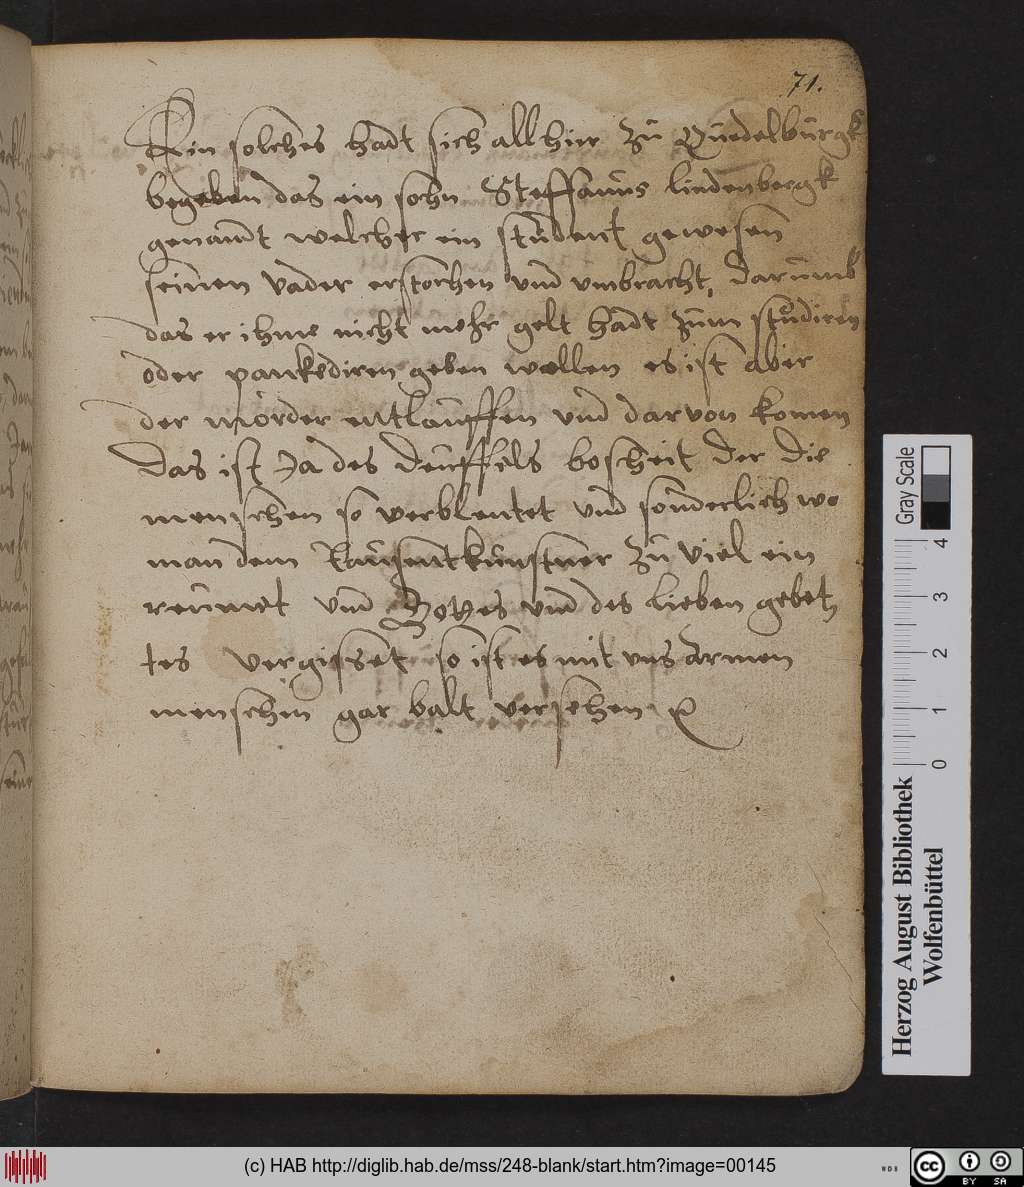 71.
Ein solches hadt sich all hier zu Quedelburgk
begeben das ein sohn Steffanus lindenbergk
genandt welcher ein student gewesen
seinen vader erstochen und umbracht, darumb
das er ihme nicht mehr gelt hadt zum studiren
oder panckediren geben wollen es ist aber
der mörder entlauffen und darvon komen
Das ist Ja des deuffels bosheit der die
menschen so verblentet und sonderlich wo
man dem tausentkunstner zu viel ein
reumet und Gottes und des lieben gebet
tes vergisset so ist es mit uns armen
menschen gar balt versehen
Gray Scale
0 1 2 3 4
Herzog August Bibliothek
Wolfenbüttel
(c) HAB http://diglib.hab.de/mss/248-blank/start.htm?image=00145
WDB
cc
BY SA